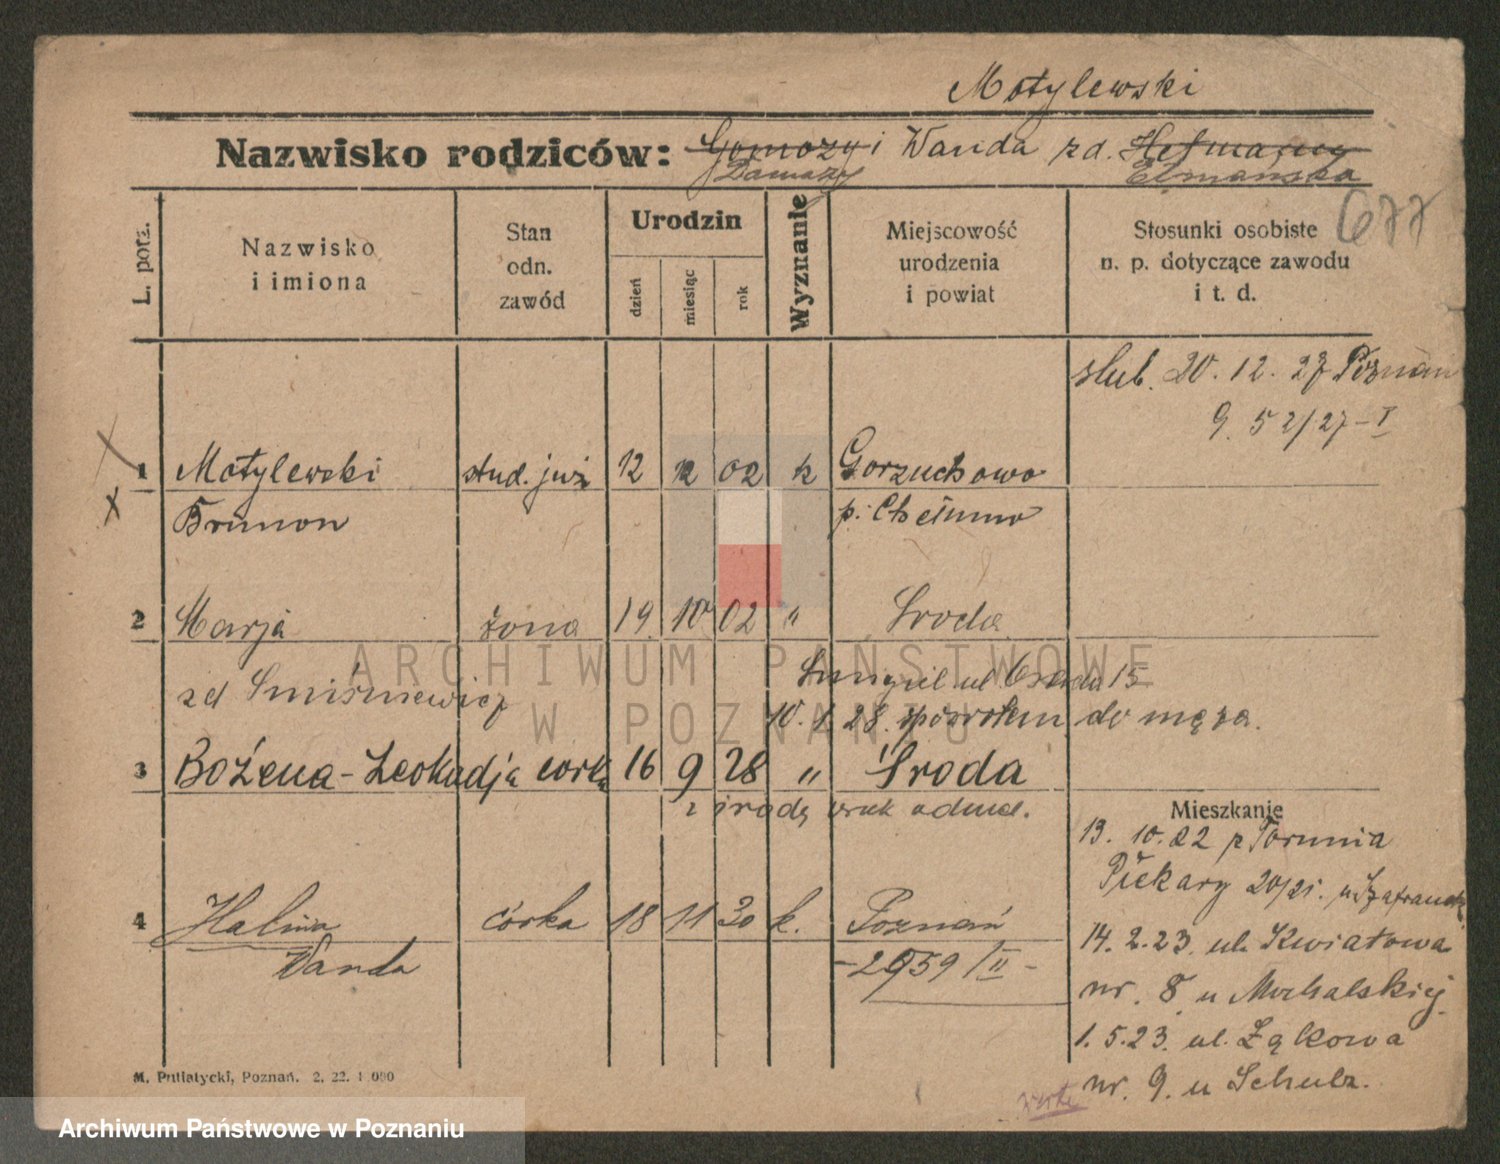 Motylewski
Nazwisko rodziców: Gomozy i Wanda zd. Hetmańsky
Damazy Etmańska
677
L. porz.
Nazwisko i imiona
Stan odn. zawód
Urodzin
dzień miesiąc rok
Wyznanie
Miejscowość urodzenia i powiat
Stosunki osobiste n. p. dotyczące zawodu i t. d.
ślub. 20. 12. 27 Poznań
G. 52/27-I
1 Motylewski stud. już 12 12 02 k Gorzuchowo
Brunon p. Chełmno
2 Marja żona 19 10 02 " Środa
zd Śmiśniewicz ul 15
10. 1. 28. spowrotem do męża.
3 Bożena-Leokadja córka 16 9 28 " Środa
z środy
Mieszkanie
13. 10. 22 z Torunia
Piekary 20/21.
4 Halina córka 18 11 30 k. Poznań
Wanda -2959/II-
14. 2. 23. ul. Kwiatowa
nr. 8 u Michalskiej.
1. 5. 23. ul. Łąkowa
nr. 9. u Schulz.
verte
M. Putiatycki, Poznań. 2. 22. 1 000
ARCHIWUM PAŃSTWOWE
W POZNANIU
Archiwum Państwowe w Poznaniu